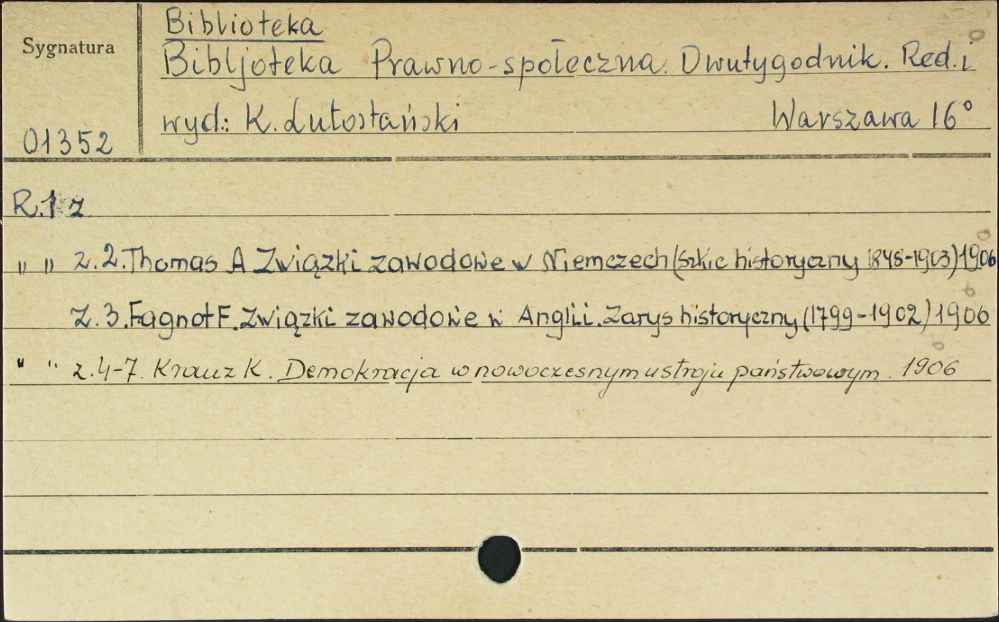 Biblioteka
Sygnatura
Bibljoteka Prawno-społeczna. Dwutygodnik. Red. i
wyd.: K. Lutostański Warszawa 16°
01352
R. 1 z
" " z. 2. Thomas A Związki zawodowe w Niemczech (szkic historyczny 1848-1903) 1906
z. 3. Fagnot F. Związki zawodowe w Anglii. Zarys historyczny (1799-1902) 1906
" " z. 4-7. Krauz K. Demokracja w nowoczesnym ustroju państwowym. 1906